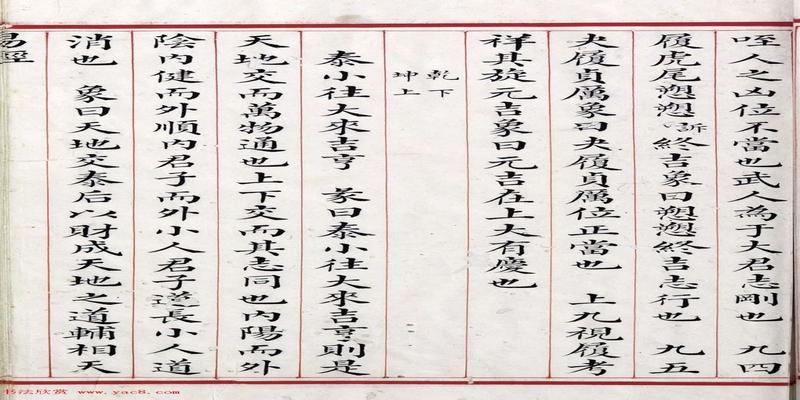 咥人之凶位不當也武人為于大君志剛也 九四
履虎尾愬愬訴終吉象曰愬愬終吉志行也 九五
夬履貞厲象曰夬履貞厲位正當也 上九視履考
祥其旋元吉象曰元吉在上大有慶也
乾下
坤上
泰小往大來吉亨 彖曰泰小往大來吉亨則是
天地交而萬物通也上下交而其志同也内陽而外
陰内健而外順内君子而外小人君子道長小人道
消也 象曰天地交泰后以財成天地之道輔相天
易經
书法欣赏 www.yac8.com